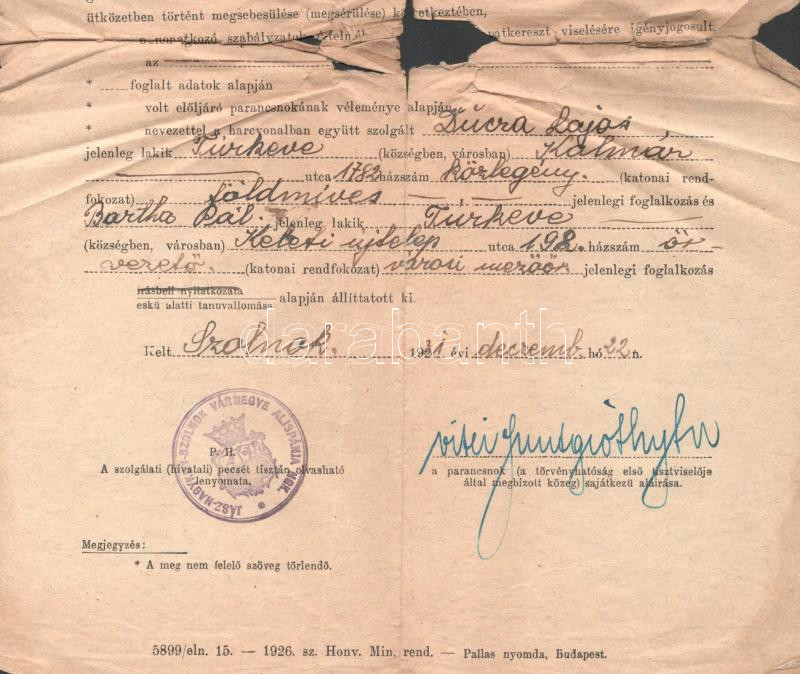 ütközetben történt megsebesülése (megsérülése) következtében,
vonatkozó szabályzatok értelmében patkereszt viselésére igényjogosult.
az
* foglalt adatok alapján
* volt előljáró parancsnokának véleménye alapján
* nevezettel a harcvonalban együtt szolgált Ducza Lajos
jelenleg lakik Túrkeve (községben, városban) Kálmán
utca 1782 házszám közlegény. (katonai rend-
fokozat) földmíves jelenlegi foglalkozás és
Bartha Pál. jelenleg lakik Túrkeve
(községben, városban) Keleti ujtelep utca 192. házszám őr-
vezető. (katonai rendfokozat) városi mezőőr jelenlegi foglalkozás
írásbeli nyilatkozata
eskü alatti tanuvallomása alapján állíttatott ki.
Kelt Szolnok. 1931 évi decemb. hó 22 n.
JÁSZ-NAGYKUN-SZOLNOK VÁRMEGYE ALISPÁNJA
P. H.
A szolgálati (hivatali) pecsét tisztán olvasható
lenyomata.
vitéz
a parancsnok (a törvényhatóság első tisztviselője
által megbízott közeg) sajátkezű aláírása.
Megjegyzés:
* A meg nem felelő szöveg törlendő.
5899/eln. 15. — 1926. sz. Honv. Min. rend. — Pallas nyomda, Budapest.
darabanth